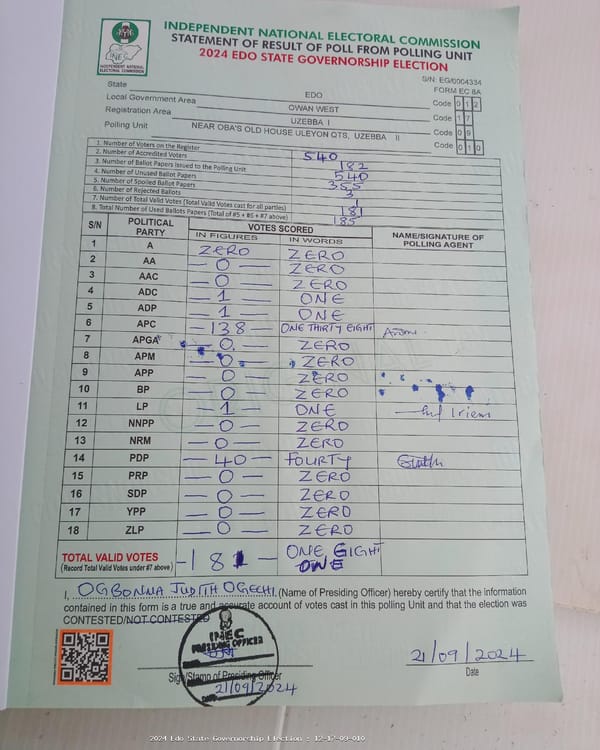 INDEPENDENT NATIONAL ELECTORAL COMMISSION
STATEMENT OF RESULT OF POLL FROM POLLING UNIT
2024 EDO STATE GOVERNORSHIP ELECTION
INEC
INDEPENDENT NATIONAL ELECTORAL COMMISSION
S/N: EG/0004334
FORM EC 8A
State EDO Code 0 1 2
Local Government Area OWAN WEST Code 1 7
Registration Area UZEBBA I Code 0 9
Polling Unit NEAR OBA'S OLD HOUSE ULEYON QTS, UZEBBA II Code 0 1 0
1. Number of Voters on the Register 540
2. Number of Accredited Voters 182
3. Number of Ballot Papers Issued to the Polling Unit 540
4. Number of Unused Ballot Papers 355
5. Number of Spoiled Ballot Papers 3
6. Number of Rejected Ballots 1
7. Number of Total Valid Votes (Total Valid Votes cast for all parties) 181
8. Total Number of Used Ballots Papers (Total of #5 + #6 + #7 above) 185
S/N POLITICAL PARTY VOTES SCORED NAME/SIGNATURE OF POLLING AGENT
IN FIGURES IN WORDS
1 A ZERO ZERO
2 AA -0- ZERO
3 AAC -0- ZERO
4 ADC -1- ONE
5 ADP -1- ONE
6 APC -138- ONE THIRTY EIGHT
7 APGA -0- ZERO
8 APM -0- ZERO
9 APP -0- ZERO
10 BP -0- ZERO
11 LP -1- ONE
12 NNPP -0- ZERO
13 NRM -0- ZERO
14 PDP -40- FOURTY
15 PRP -0- ZERO
16 SDP -0- ZERO
17 YPP -0- ZERO
18 ZLP -0- ZERO
TOTAL VALID VOTES -181- ONE EIGHT ONE
(Record Total Valid Votes under #7 above)
I, OGBONNA JUDITH OGECHI (Name of Presiding Officer) hereby certify that the information
contained in this form is a true and accurate account of votes cast in this polling Unit and that the election was
CONTESTED/NOT CONTESTED
INEC
PRESIDING OFFICER
21/09/2024
Sign/Stamp of Presiding Officer
21/09/2024
Date
2024 Edo State Governorship Election : 12-17-09-010